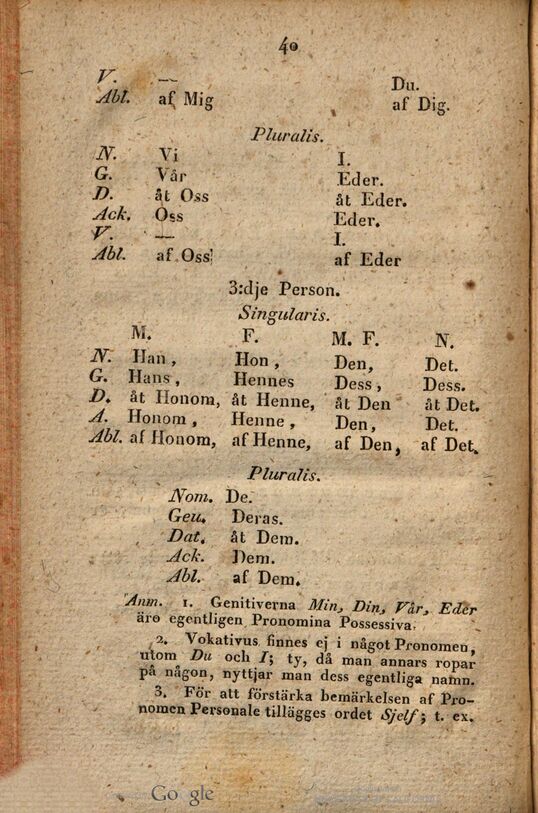 40
V. — Du.
Abl. af Mig af Dig.
Pluralis.
N. Vi I.
G. Vår Eder.
D. åt Oss åt Eder.
Ack. Oss Eder.
V. — I.
Abl. af Oss af Eder
3:dje Person.
Singularis.
M. F. M. F. N.
N. Han, Hon, Den, Det.
G. Hans, Hennes Dess, Dess.
D. åt Honom, åt Henne, åt Den åt Det.
A. Honom, Henne, Den, Det.
Abl. af Honom, af Henne, af Den, af Det.
Pluralis.
Nom. De.
Gen. Deras.
Dat. åt Dem.
Ack. Dem.
Abl. af Dem.
Anm. 1. Genitiverna Min, Din, Vår, Eder
äro egentligen Pronomina Possessiva.
2. Vokativus finnes ej i något Pronomen,
utom Du och I; ty, då man annars ropar
på någon, nyttjar man dess egentliga namn.
3. För att förstärka bemärkelsen af Pro-
nomen Personale tillägges ordet Sjelf; t. ex.
Go gle